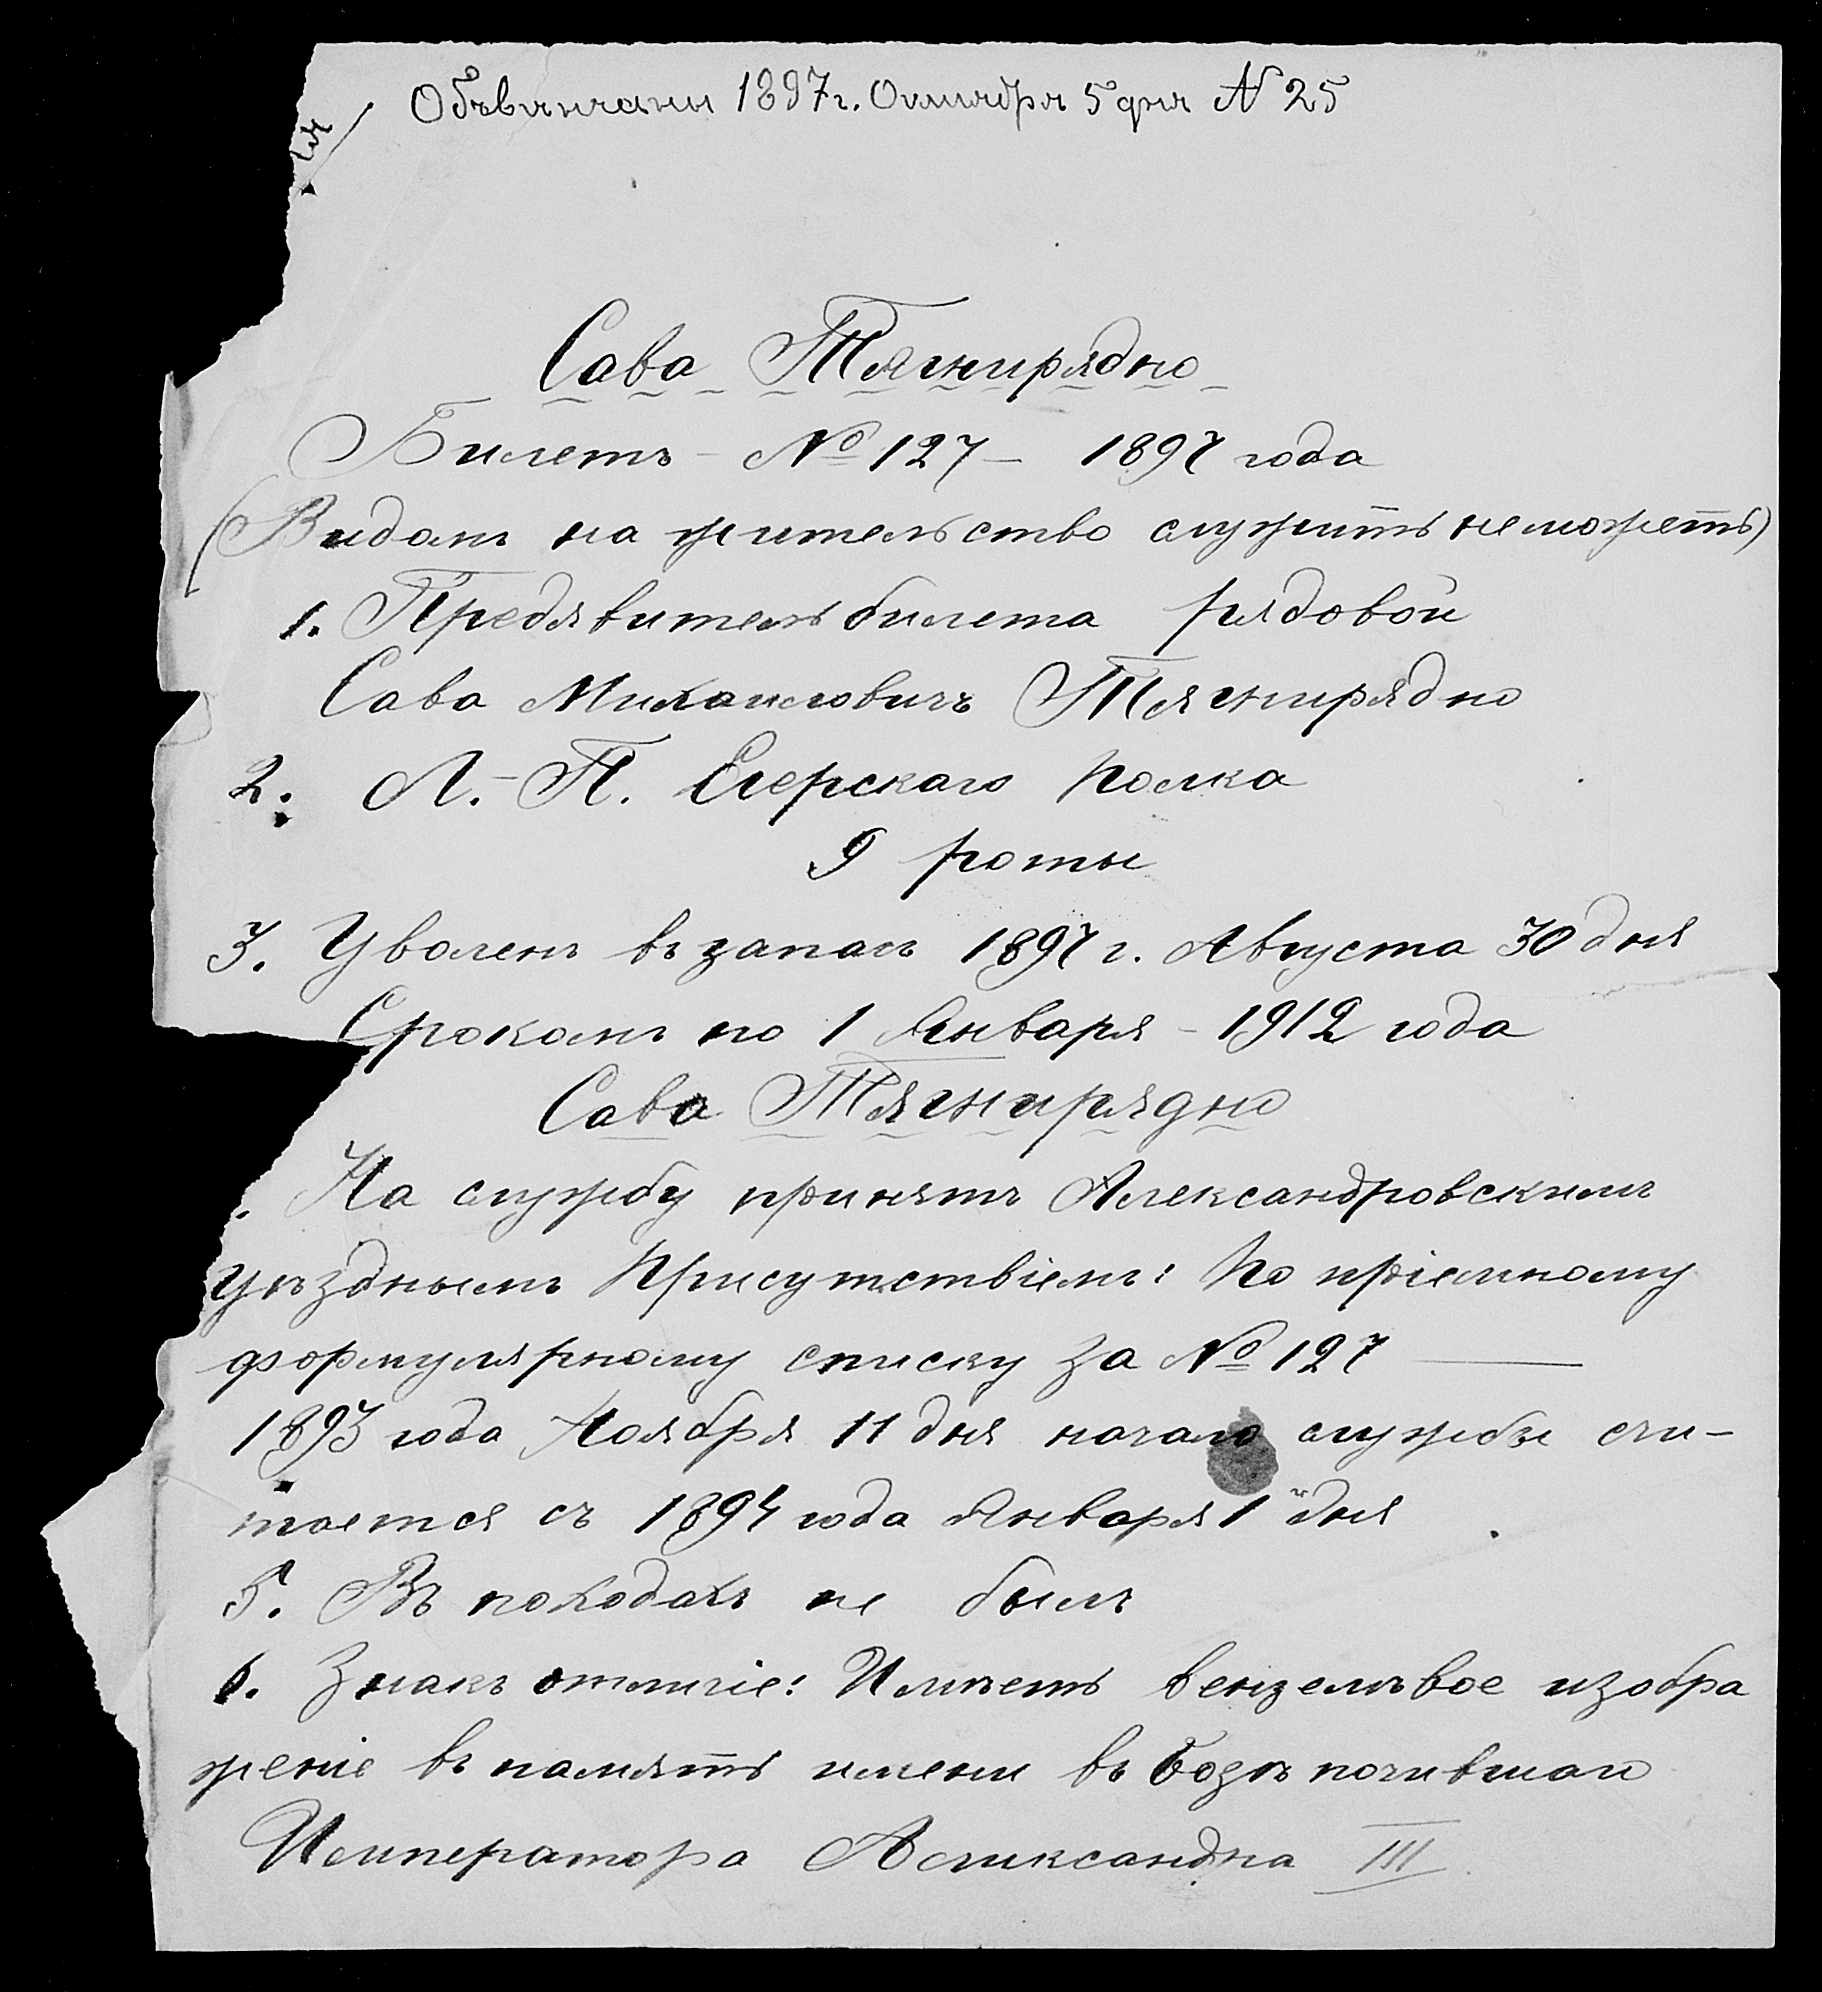 Обвѣнчаны 1897 г. Октября 5 дня N 25
Сава Тягнирядно
Билетъ - № 127 - 1897 года
(Видомъ на жительство служить не можетъ)
1. Предявитель билета рядовой
Сава Михаиловичъ Тягнирядно
2. Л.-Г. Егерскаго полка
9 роты
3. Уволенъ въ запасъ 1897 г. Августа 30 дня
Срокомъ по 1 Января - 1912 года
Сава Тягнирядно
. На службу принятъ Александровскимъ
Уѣзднымъ Присутствіемъ: По пріемному
формулярному списку за № 127 —
1893 года Ноября 11 дня начало службы счи-
тается съ 1894 года Января 1 дня
5. Въ походахъ не былъ
6. Знакъ отличіе: Имѣетъ вензелѣвое изобра
женіе въ память имени въ Бозѣ почившаго
Императора Александра III